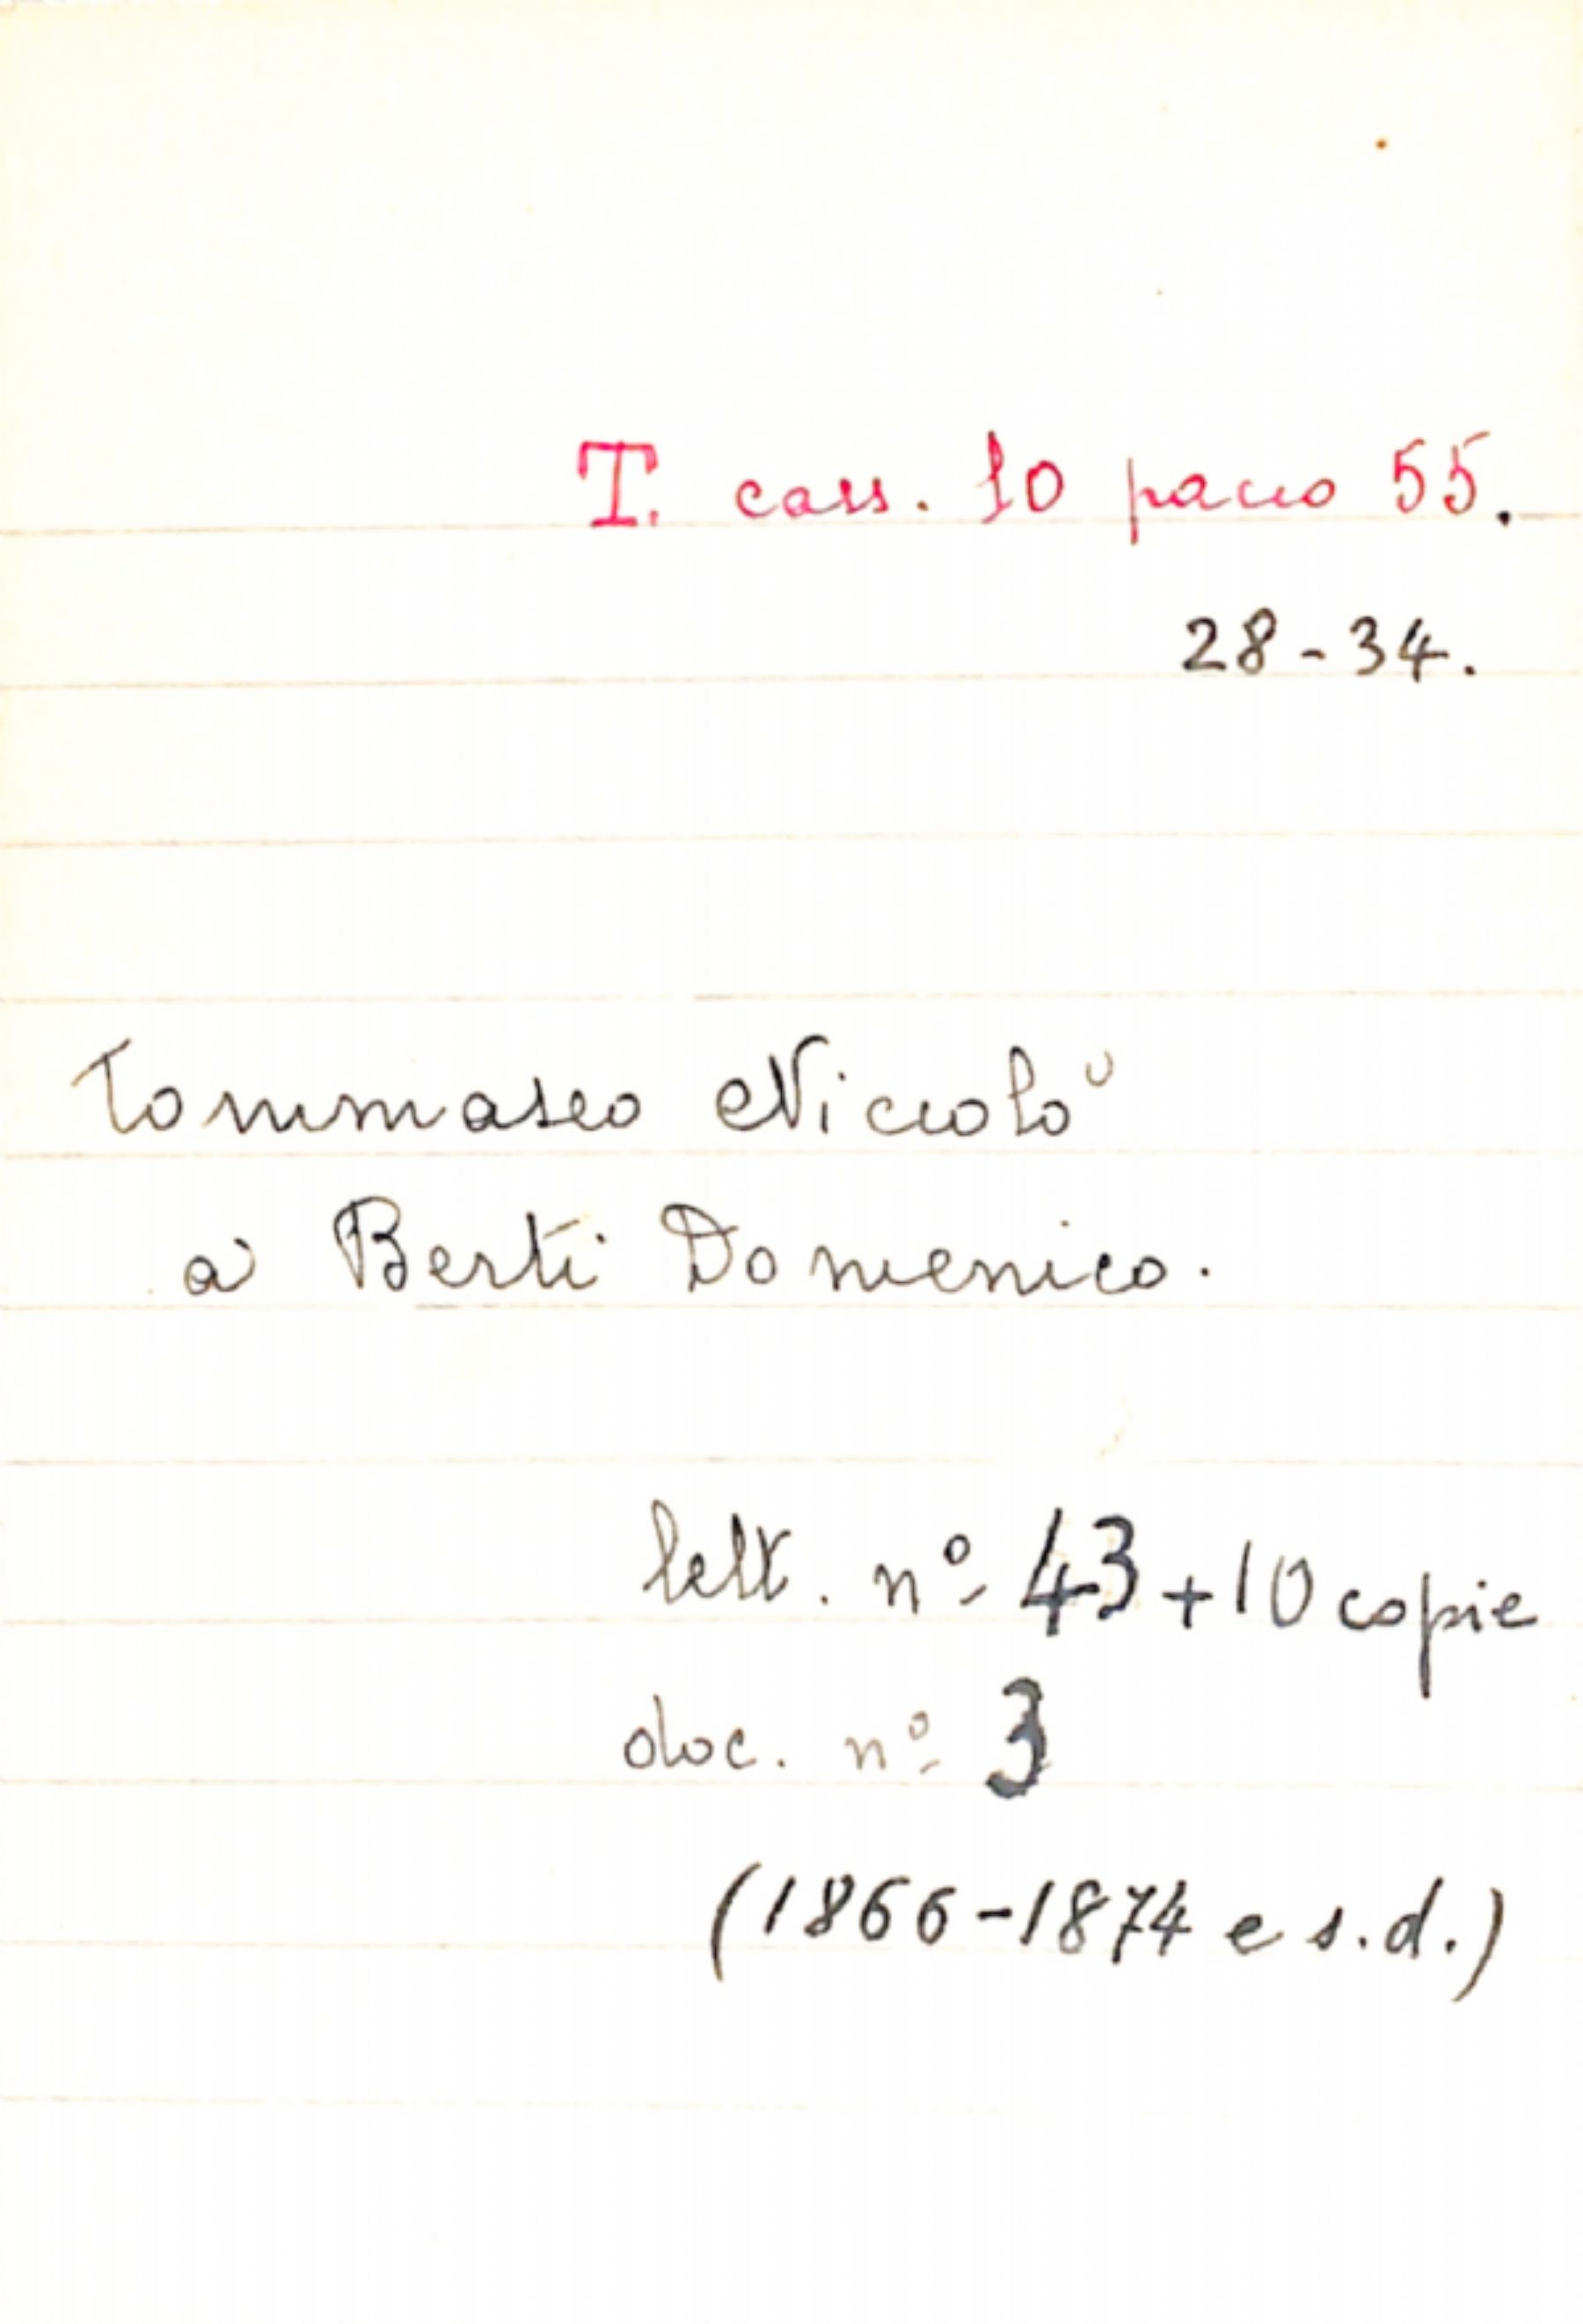 T. cass. 10 pacco 55.
28-34.
Tommaseo Niccolò
a Berti Domenico.
lett. nº 43 + 10 copie
doc. nº 3
(1866-1874 e s.d.)